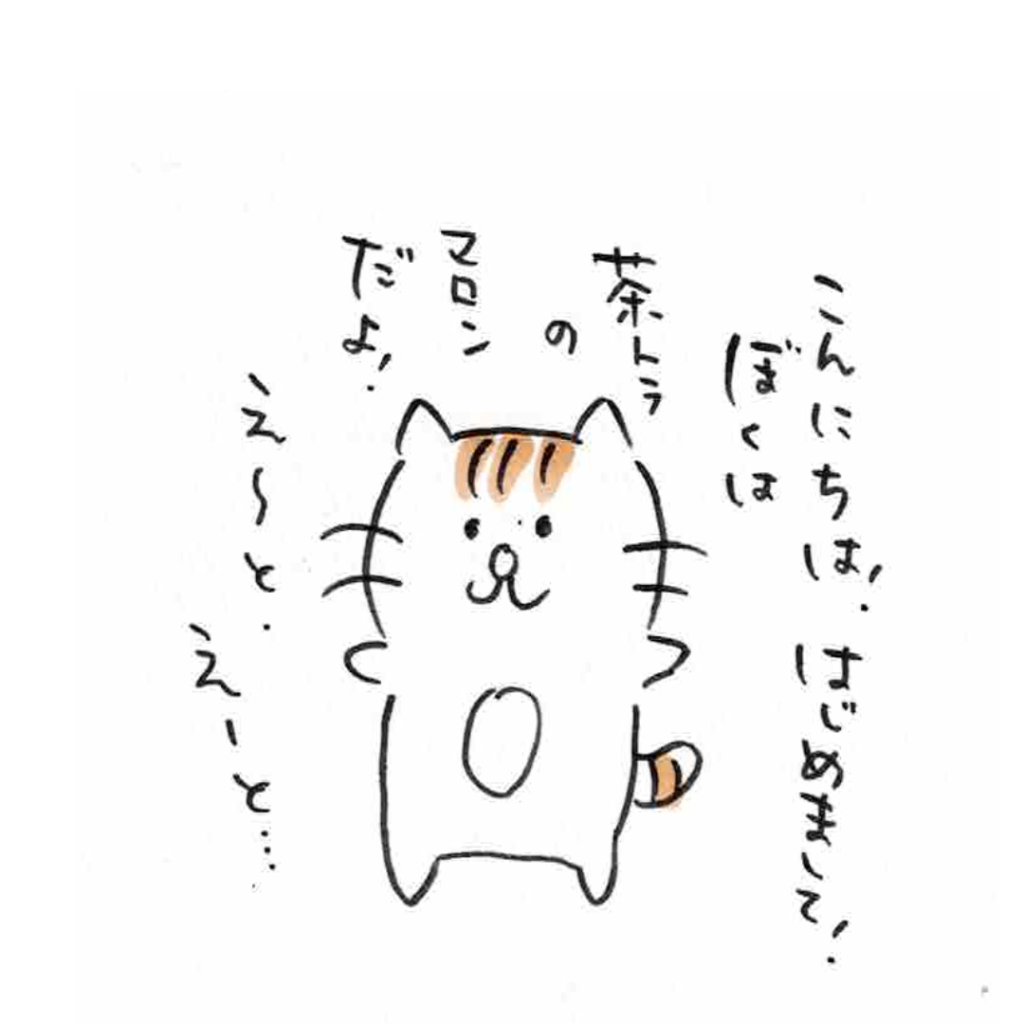 こんにちは！はじめまして！
ぼくは
茶トラ
の
マロン
だよ！
え〜と．
えーと…